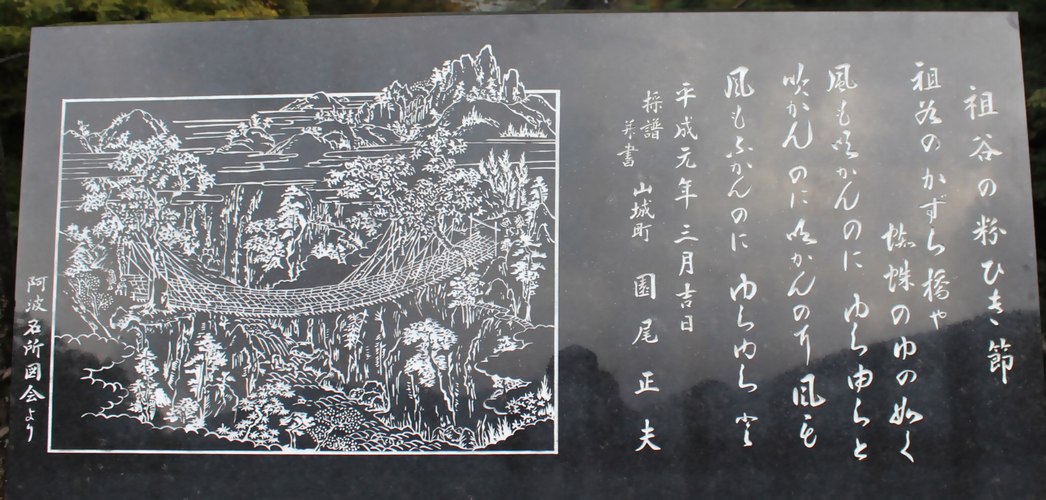 祖谷の粉ひき節
祖谷のかずら橋や
蜘蛛のゆの如く
風も吹かんのに ゆらゆらと
吹かんのに 吹かんのに 風も
風もふかんのに ゆらゆらと
平成元年 三月吉日
採譜並書 山城町 園尾正夫
阿波名所図会より